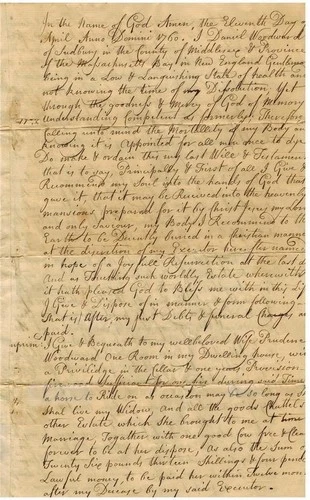 In the Name of God Amen, the Eleventh Day of
April Anno Domini 1760. I Daniel Woodward
of Sudbury in the County of Middlesex & Province
of the Massachusetts Bay in New England Gentleman
Being in a Low & Languishing State of health and
not knowing the time of my Dissolution, Yet
through the goodness & Mercy of God of Memory
Understanding Competent as formerly, Therefore
calling into mind the Mortallity of my Body and
knowing it is Appointed for all men once to dye
Do make & ordain this my last Will & Testament
that is to say, Principally & First of all I Give &
Recommend my Soul into the hands of God that
gave it, that it may be Received into the heavenly
mansions prepared for it by Christ Jesus my alone
and only Saviour, my Body I Recommend to the
Earth to be Decently buried in a Christian manner
at the discretion of my Executor hereafter named
in hope of a Joyfull Resurrection att the last day
And as Touching such worldly Estate wherewith
it hath pleased God to Bless me with in this Life
I Give & Dispose of in manner & form following
That is, After my just Debts & funeral Charges are
paid.
Imprim: I Give & Bequeath to my wellbeloved Wife Prudence
Woodward One Room in my Dwelling house, with
a Priviledge in the Cellar & one years Provision
fire wood Sufficient for one fire during said Time
a horse to Ride on as ocasion may be so long as She
Shall live my Widow, And all the goods Chattels
other Estate which She brought to me at
Marriage, Together with one good Cow free & Clear
forever to be at her dispose, As also the Sum of
Twenty Six pounds thirteen Shillings & four pence
Lawful money, to be paid her within Twelve months
after my Decease by my said Executor.